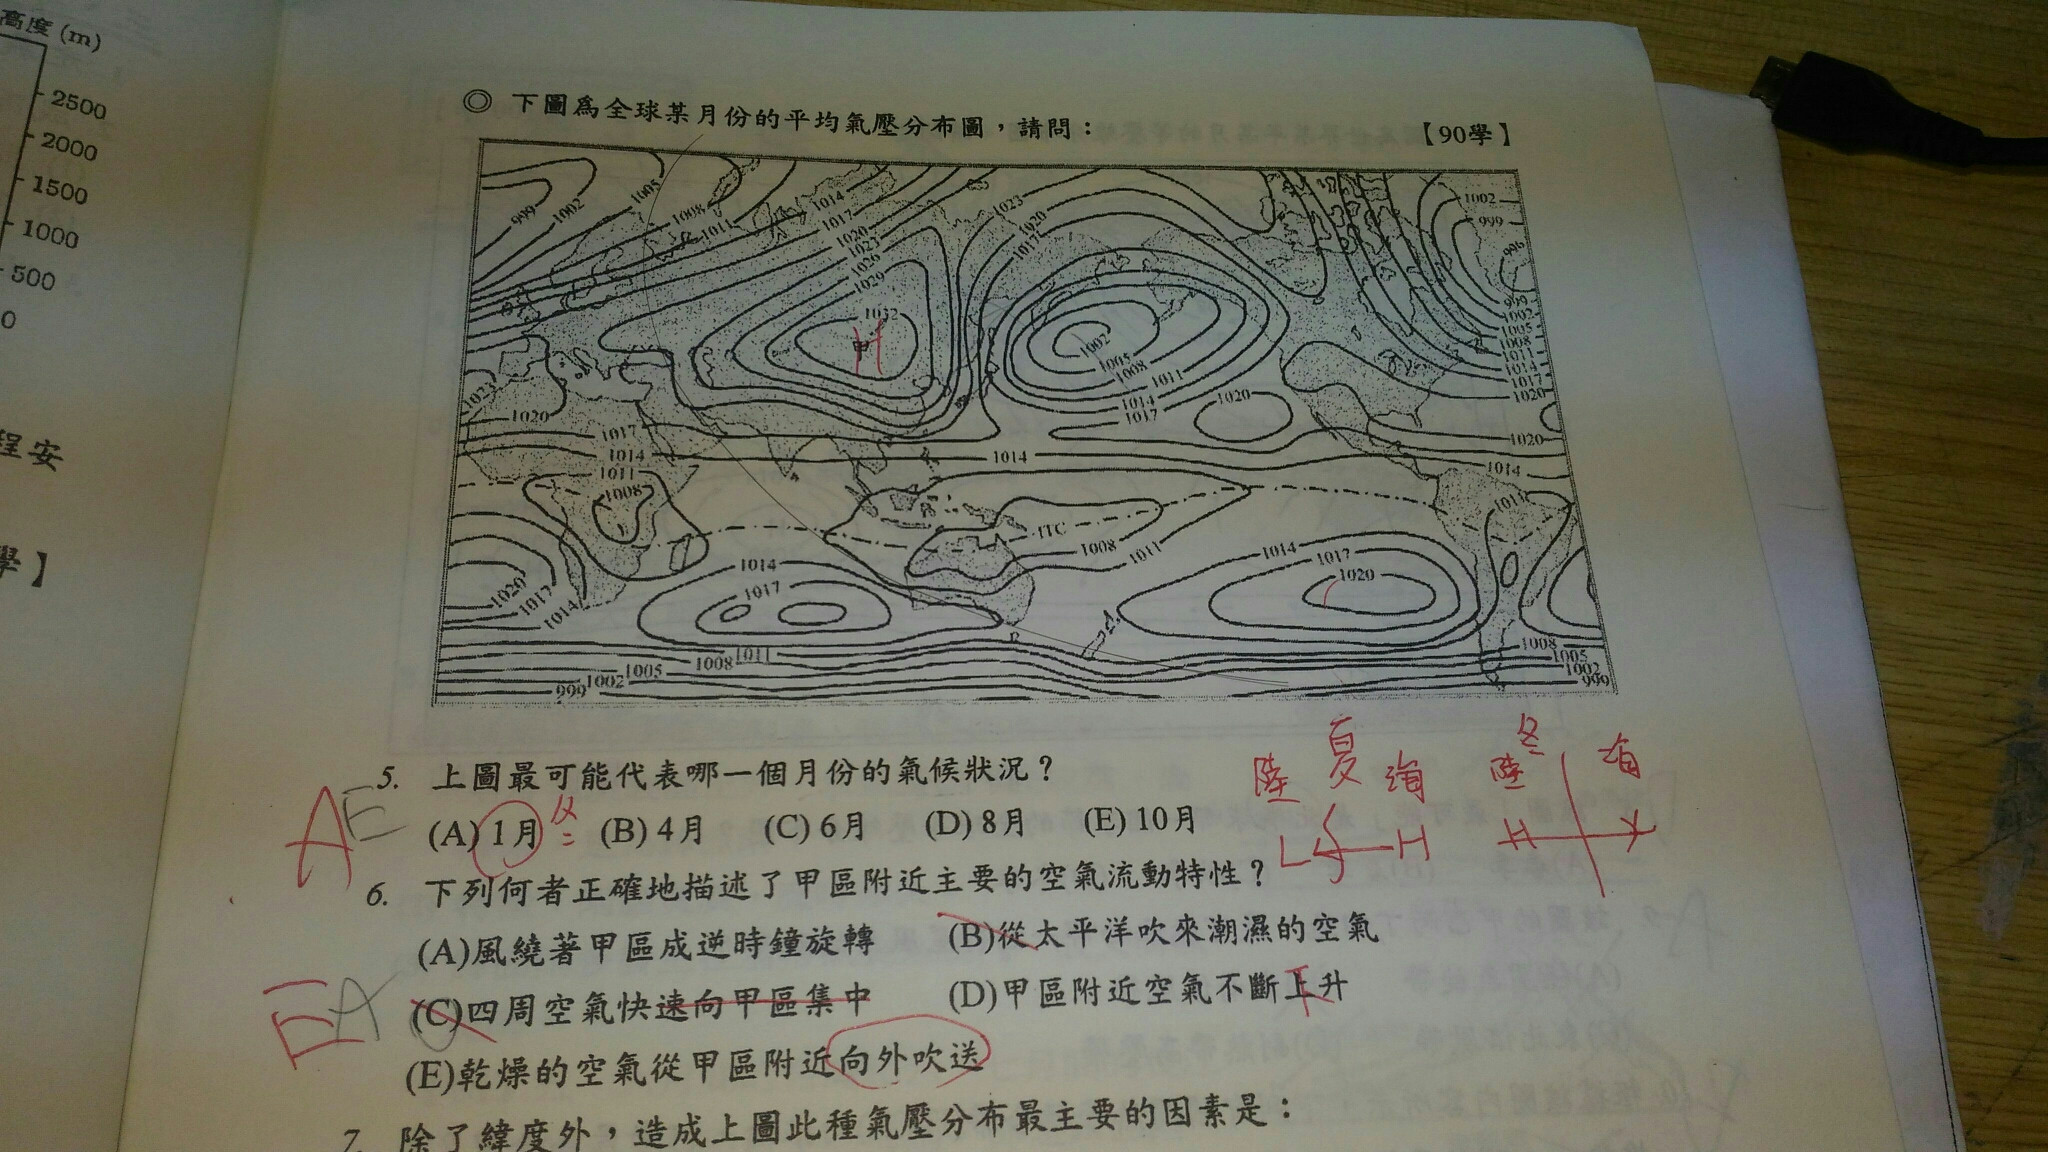 高度 (m)
2500
2000
1500
1000
500
0
程安
學】
◎ 下圖為全球某月份的平均氣壓分布圖，請問： 【90學】
999 1002 1005 1008 1011 1014 1017 1020 1023 1026 1029 1032
甲 H
1023 1020 1017
1002 1005 1008 1011 1014 1017
1020
1002 999 996
999 1002 1005 1008 1011 1014 1017 1020
1023 1020 1017 1014 1011 1008
1014
1020
1014
1011
ITC 1008 1011
1020 1017 1014
1014 1017
1014 1017 1020
999 1002 1005 1008 1011
1008 1005 1002 999
5. 上圖最可能代表哪一個月份的氣候狀況？
A E
(A) 1月 (B) 4月 (C) 6月 (D) 8月 (E) 10月
冬
夏
陸 海
L H
冬
陸 海
H
6. 下列何者正確地描述了甲區附近主要的空氣流動特性？
(A)風繞著甲區成逆時鐘旋轉 (B)從太平洋吹來潮濕的空氣
E A
(C)四周空氣快速向甲區集中 (D)甲區附近空氣不斷上升
下
(E)乾燥的空氣從甲區附近向外吹送
7. 除了緯度外，造成上圖此種氣壓分布最主要的因素是：